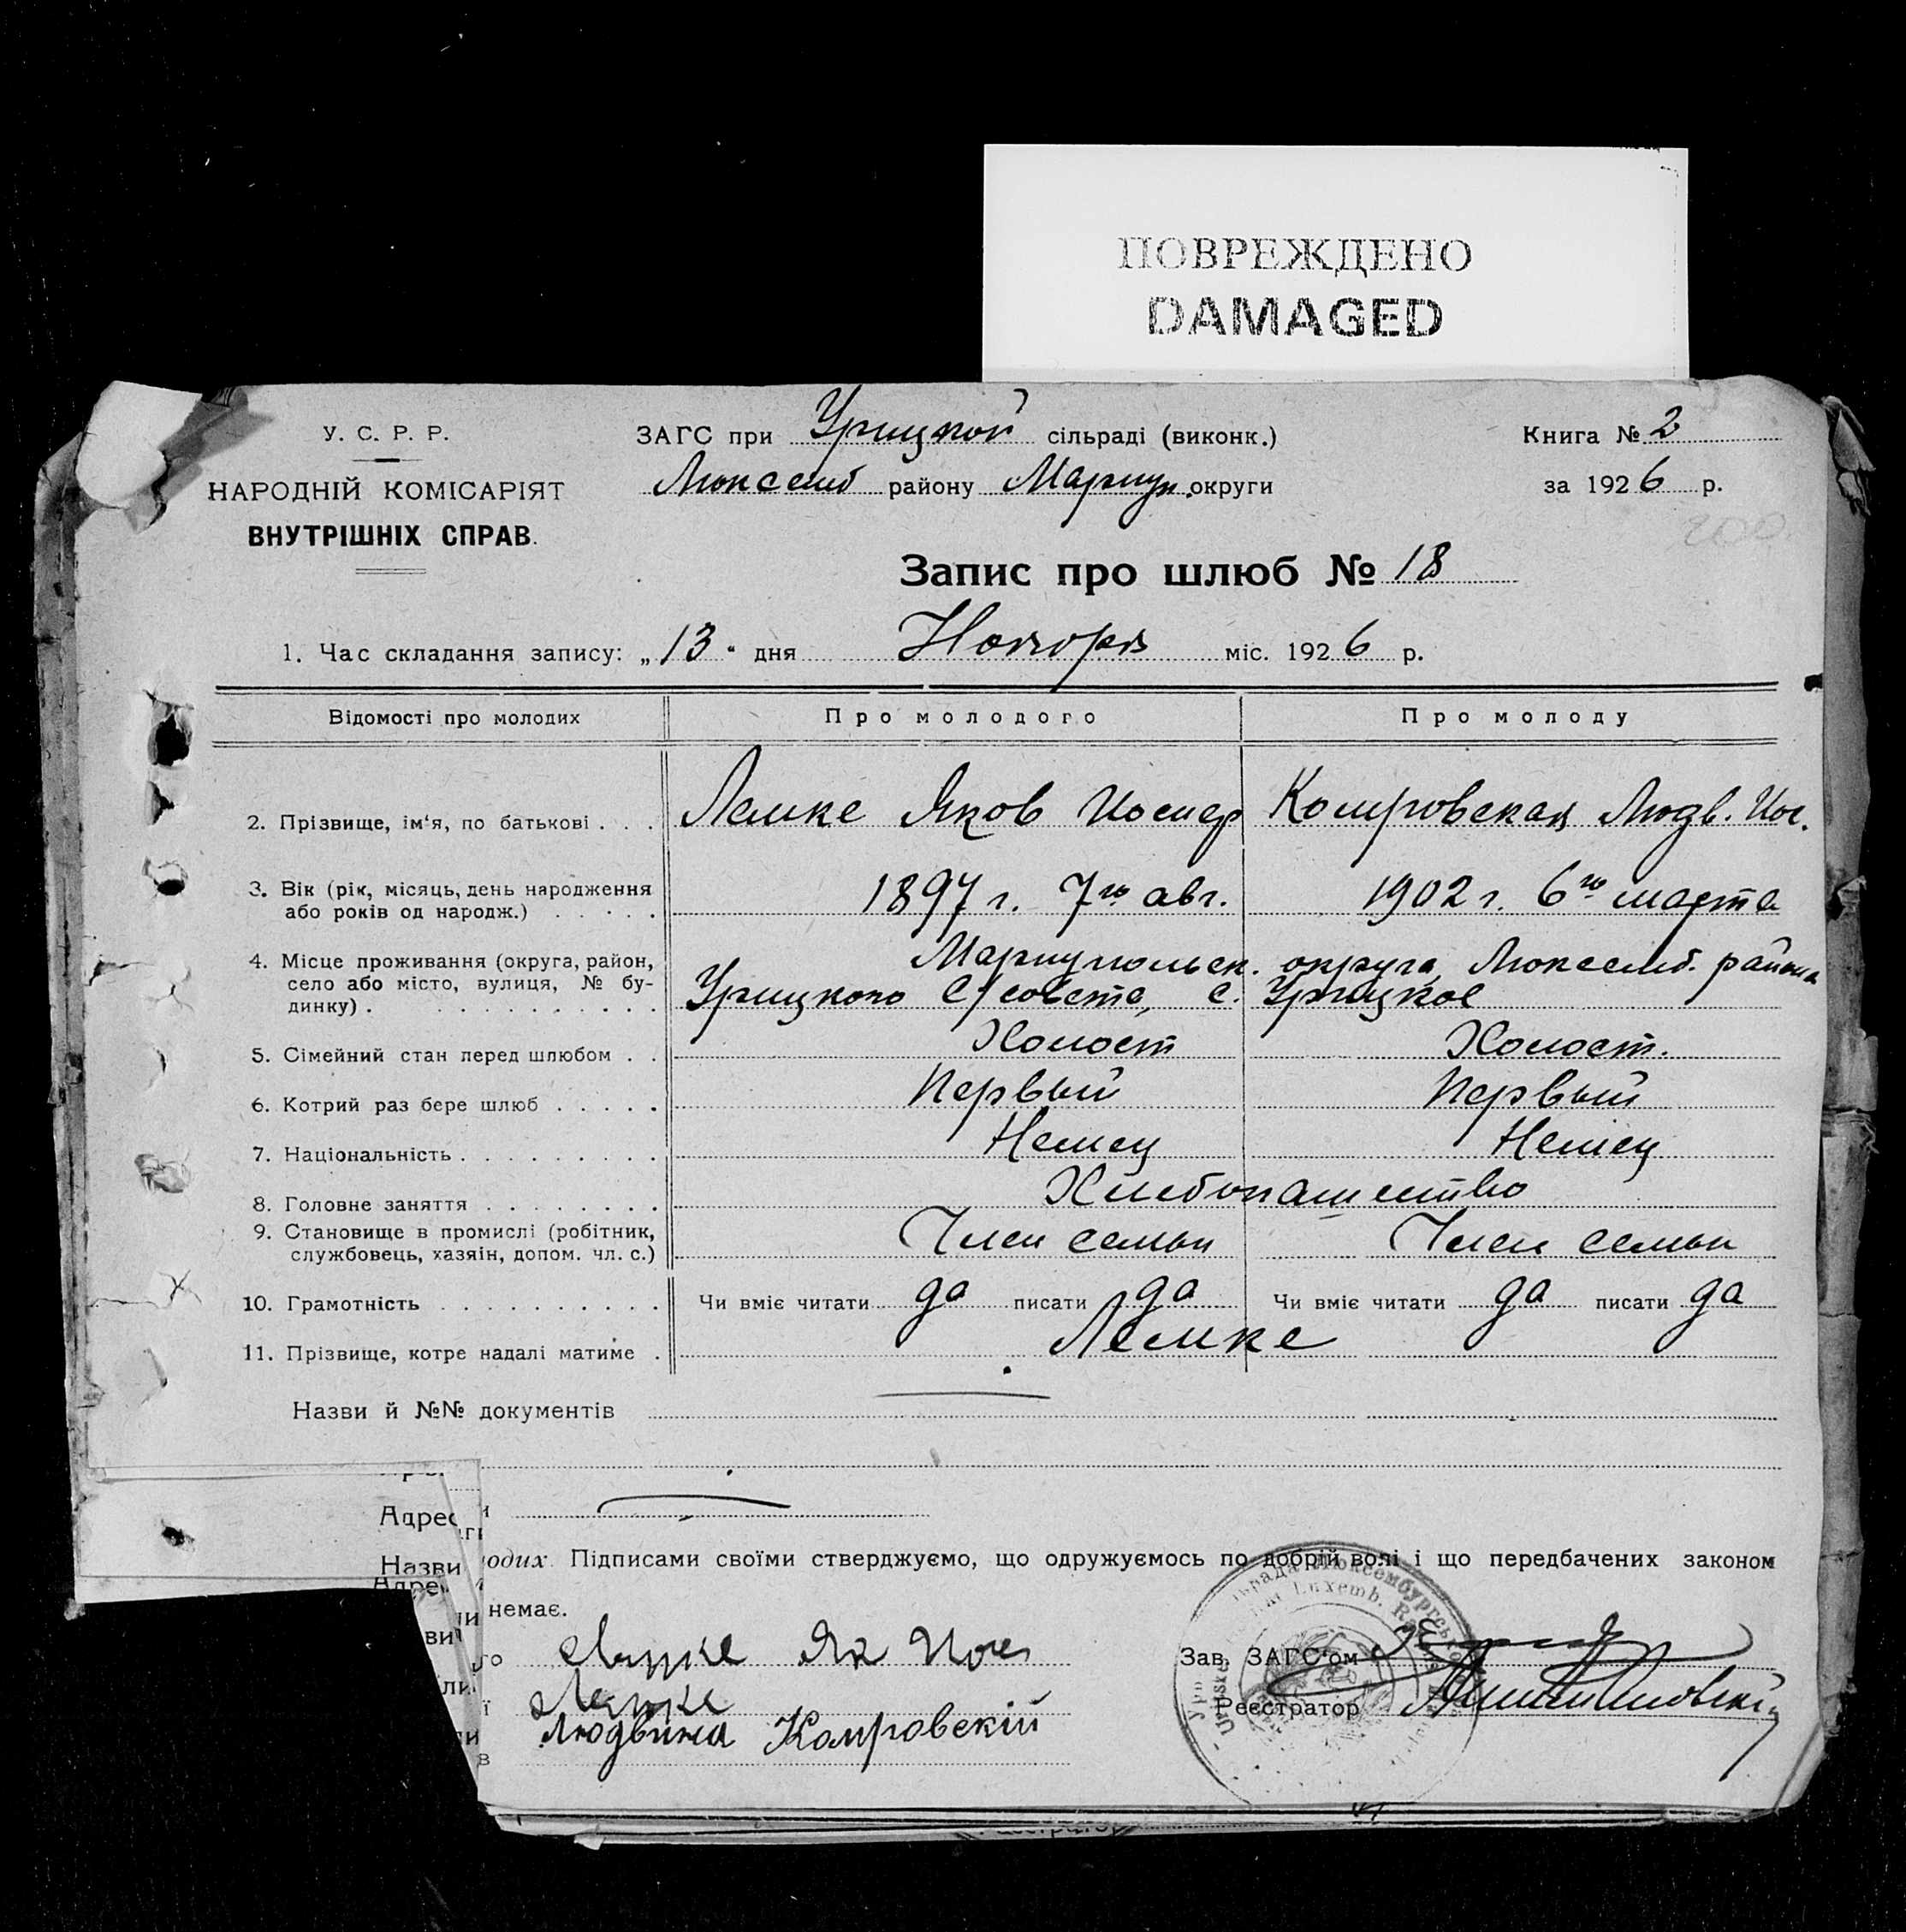 ПОВРЕЖДЕНО
DAMAGED
У. С. Р. Р.
НАРОДНІЙ КОМІСАРІЯТ
ВНУТРІШНІХ СПРАВ.
ЗАГС при Урицкой сільраді (виконк.)
Люксемб району Мариуп. округи
Книга № 2
за 1926 р.
200.
Запис про шлюб № 18
1. Час складання запису: „13" дня Ноября міс. 1926 р.
Відомості про молодих Про молодого Про молоду
2. Прізвище, ім'я, по батькові . . . Лемке Яков Иосиф Комровская Людв. Иос.
3. Вік (рік, місяць, день народження
або років од народж.) . . . . . 1897 г. 7го авг. 1902 г. 6го марта
4. Місце проживання (округа, район, Мариупольск. округа, Люксемб. района
село або місто, вулиця, № бу- Урицкого С/совета, с. Урицкое
динку) . . . . . . . . . . .
5. Сімейний стан перед шлюбом . . Холост Холост.
6. Котрий раз бере шлюб . . . . . Первый Первый
7. Національність . . . . . . . . . Немец Немец
8. Головне заняття . . . . . . . . Хлебопашество
9. Становище в промислі (робітник,
службовець, хазяін, допом. чл. с.) Член семьи Член семьи
10. Грамотність . . . . . . . . . . Чи вміє читати да писати да Чи вміє читати да писати да
11. Прізвище, котре надалі матиме . Лемке
Назви й №№ документів
Адрес
Назви
одих. Підписами своїми стверджуємо, що одружуємось по добрій волі і що передбачених законом
немає.
Лемке Як Иос
Зав. ЗАГС'ом
Лемке
Реєстратор
Людвина Комровскій